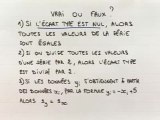 VRAI OU FAUX ?
1) SI L'ÉCART TYPE EST NUL, ALORS
TOUTES LES VALEURS DE LA SÉRIE
SONT ÉGALES
2) SI ON DIVISE TOUTES LES VALEURS
D'UNE SÉRIE PAR 2, ALORS L'ÉCART TYPE
EST DIVISÉ PAR 2.
3) SI LES DONNÉES yi S'OBTIENNENT À PARTIR
DES DONNÉES xi PAR LA FORMULE yi = -xi +5
ALORS sy = sx